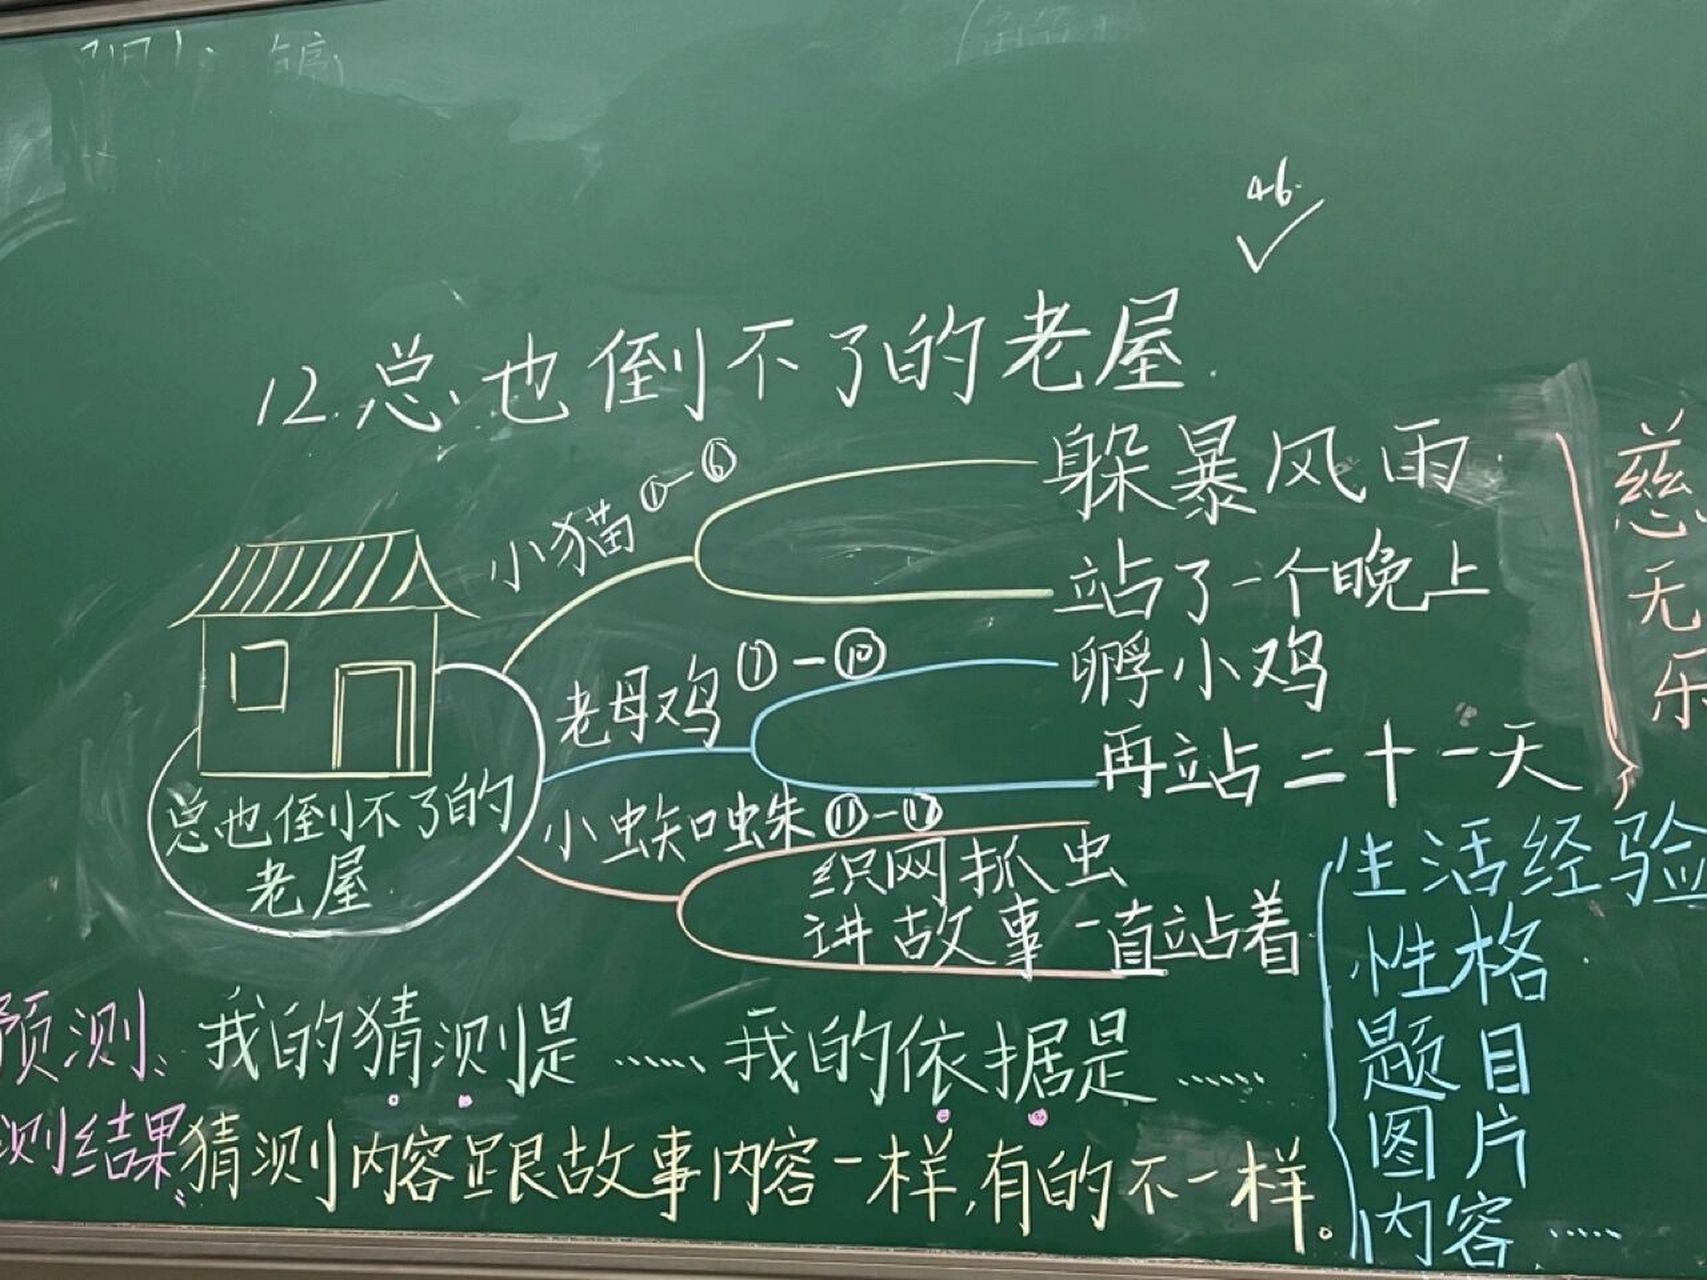 46.
12.总也倒不了的老屋.
小猫①-⑥
躲暴风雨
站了一个晚上
老母鸡⑦-⑩
孵小鸡
再站二十一天
小蜘蛛⑪-⑰
织网抓虫
讲故事一直站着
总也倒不了的
老屋.
慈
无
乐
生活经验
性格
题目
图片
内容……
预测: 我的猜测是……我的依据是……
测结果: 猜测内容跟故事内容一样,有的不一样。